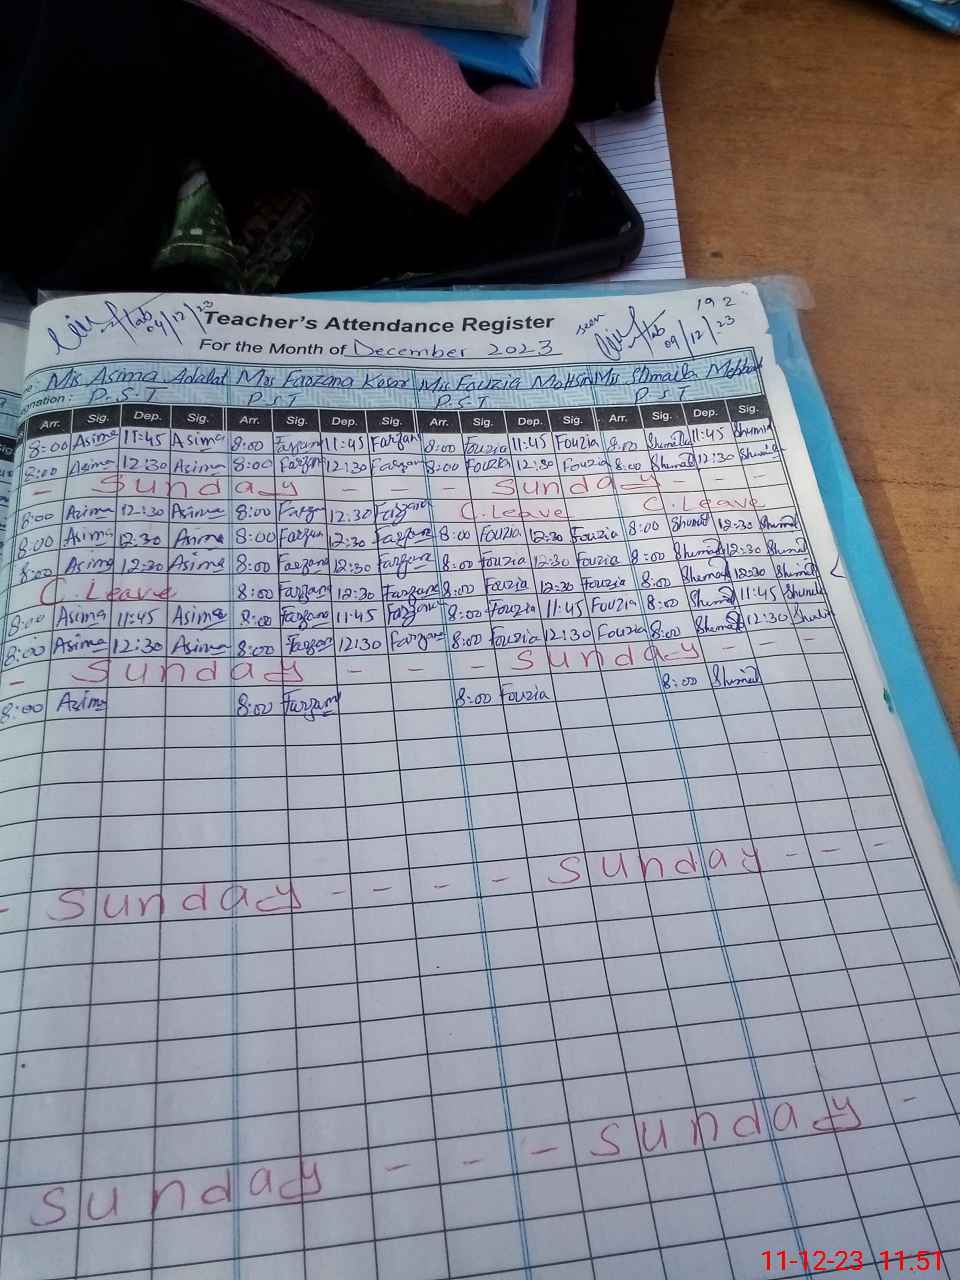 04/12/23 Teacher's Attendance Register seen 09/12/23 192
For the Month of December 2023
Mrs Asima Adalat Mrs Farzana Kosar Mrs Fauzia Mohsin Mrs Shmaila
nation: P.S.T P.S.T P.S.T P.S.T
Arr. Sig. Dep. Sig. Arr. Sig. Dep. Sig. Arr. Sig. Dep. Sig. Arr. Sig. Dep. Sig.
8:00 Asima 11:45 Asima 8:00 Farzan 11:45 Farzan 8:00 Fouzia 11:45 Fouzia 8:00 11:45
8:00 Asima 12:30 Asima 8:00 Farzan 12:30 Farzan 8:00 Fouzia 12:30 Fouzia 8:00 12:30
- Sunday - - - - Sunday - - -
8:00 Asima 12:30 Asima 8:00 Farzan 12:30 Farzana C.Leave C.Leave
8:00 Asima 12:30 Asima 8:00 Farzan 12:30 Farzane 8:00 Fouzia 12:30 Fouzia 8:00 12:30
8:00 Asima 12:30 Asima 8:00 Farzana 12:30 Farzane 8:00 Fouzia 12:30 Fouzia 8:00 12:30
C. Leave 8:00 Farzana 12:30 Farzana 8:00 Fouzia 12:30 Fouzia 8:00 12:30
8:00 Asima 11:45 Asima 8:00 Farzana 11:45 Farzane 8:00 Fouzia 11:45 Fouzia 8:00 11:45
8:00 Asima 12:30 Asima 8:00 Farzan 12:30 Farzane 8:00 Fouzia 12:30 Fouzia 8:00 12:30
- Sunday - - - - Sunday - - -
8:00 Asima 8:00 Farzam 8:00 Fouzia 8:00
- Sunday - - - - Sunday - - -
Sunday - - - Sunday -
11-12-23 11.51